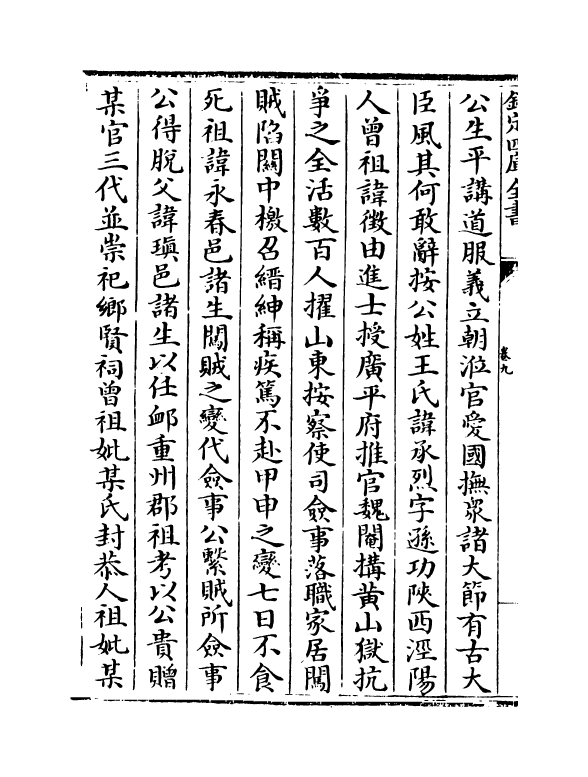 欽定四庫全書
卷九
公生平講道服義立朝涖官愛國撫衆諸大節有古大
臣風其何敢辭按公姓王氏諱承烈字遜功陝西涇陽
人曾祖諱徵由進士授廣平府推官魏閹搆黄山獄抗
爭之全活數百人擢山東按察使司僉事落職家居闖
賊陷關中檄召縉紳稱疾篤不赴甲申之變七日不食
死祖諱永春邑諸生闖賊之變代僉事公繫賊所僉事
公得脫父諱瑱邑諸生以任䘏重州郡祖考以公貴贈
某官三代並崇祀鄉賢祠曾祖妣某氏封恭人祖妣某